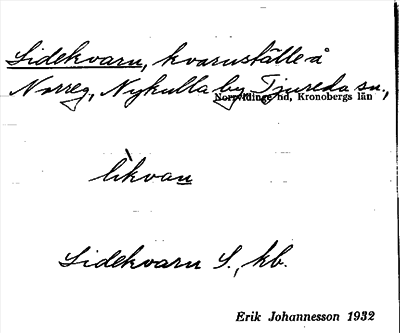 Lidekvarn, kvarnställe å
Norreg, Nykulla by Tjureda sn.,
Norrvidinge hd, Kronobergs län
lìkvan
Lidekvarn S., kb.
Erik Johannesson 1932